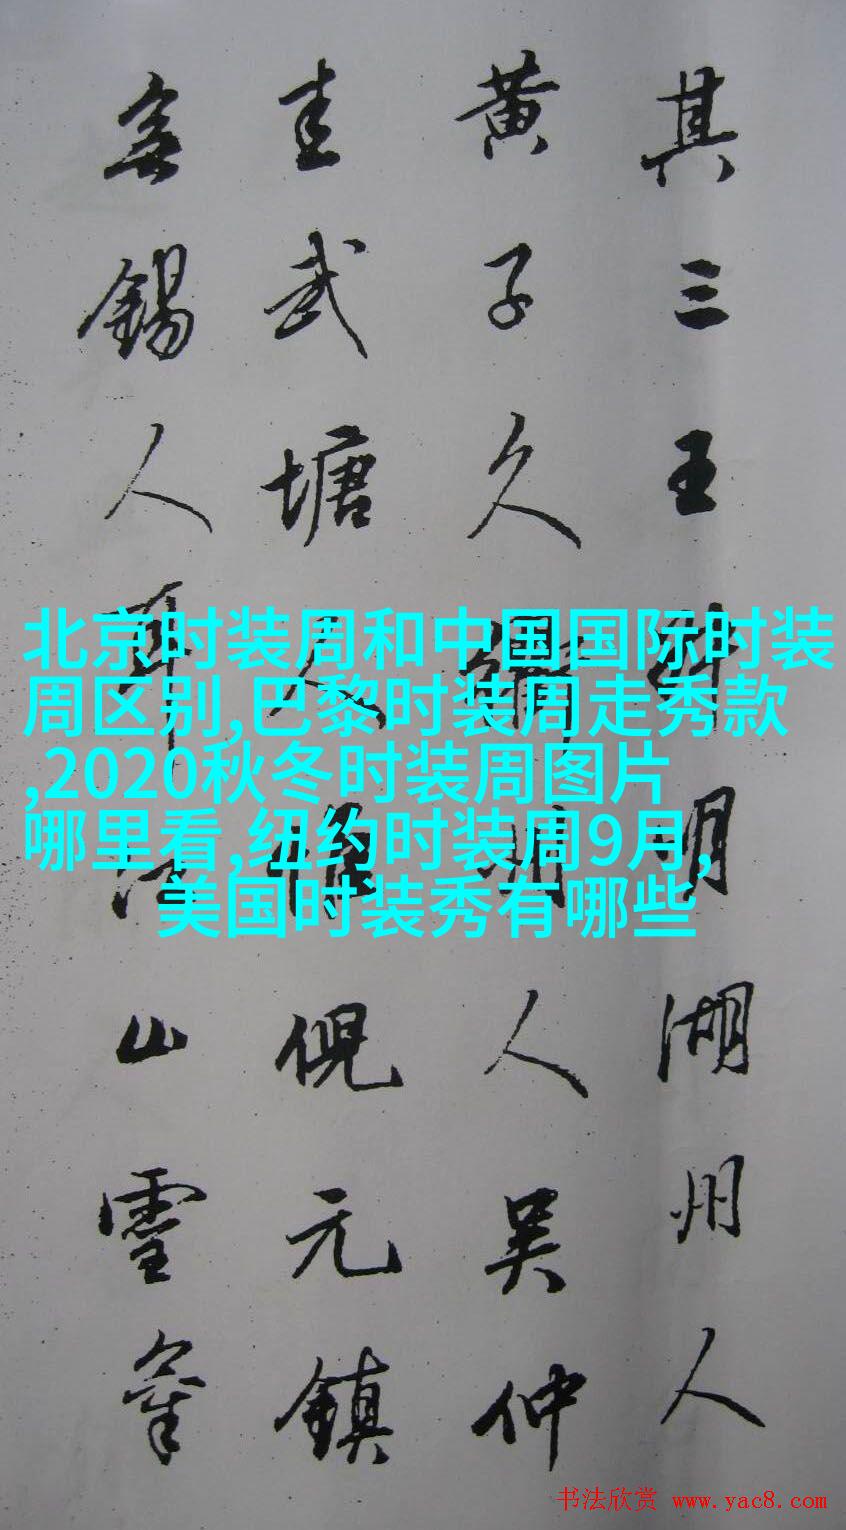 北京时装周和中国国际时装
周区别,巴黎时装周走秀款
,2020秋冬时装周图片
哪里看,纽约时装周9月,
美国时装秀有哪些
其三王叔明湖州人
黃子久人吳仲
圭武塘人惟倪元鎮
無錫人耳山
书法欣赏 www.yac8.com